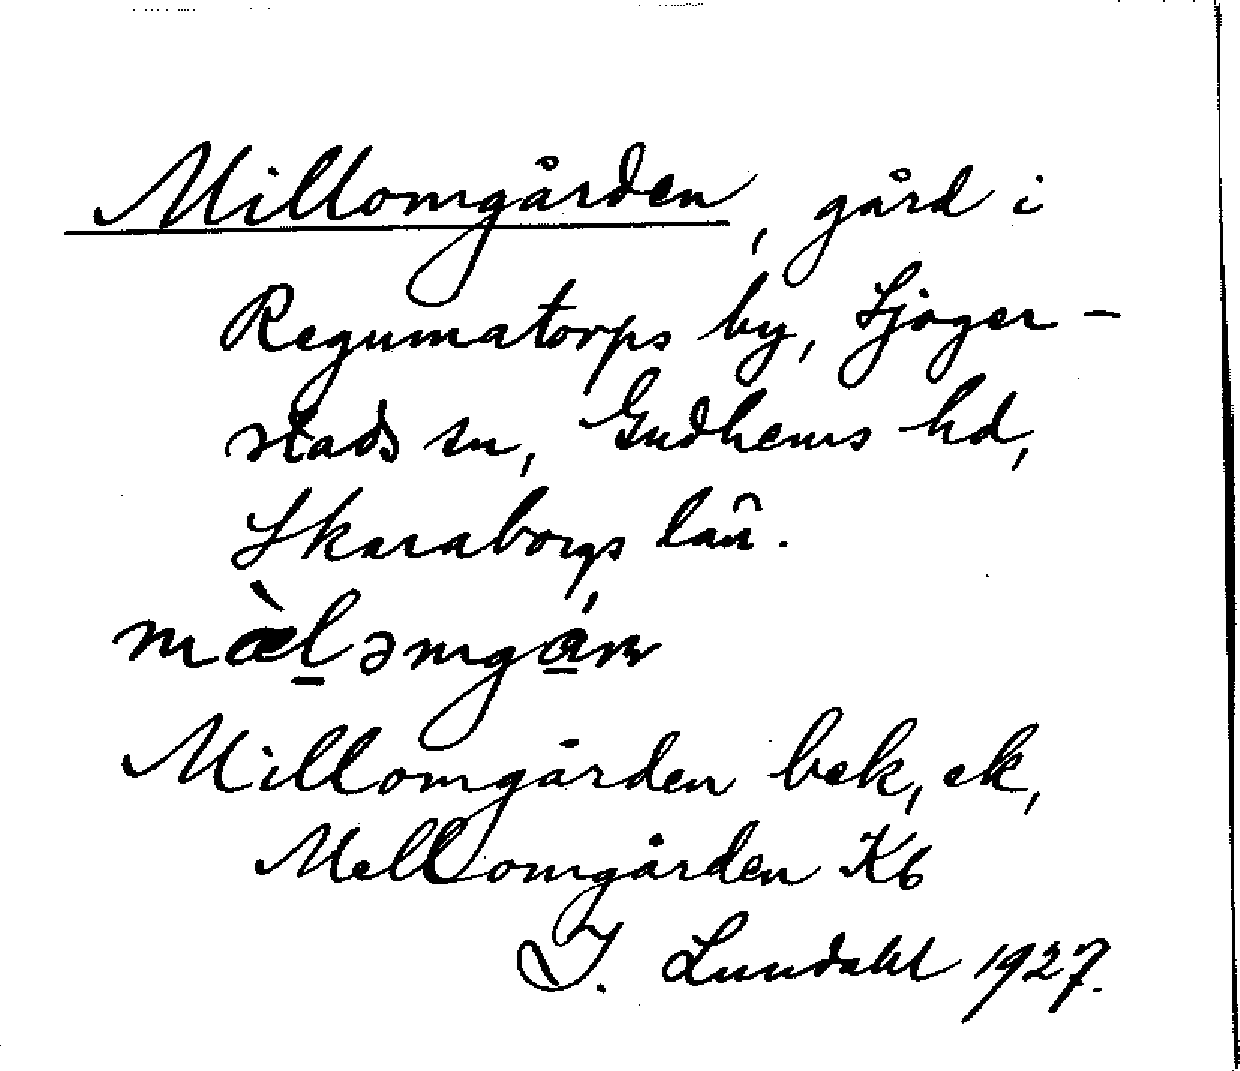 Millomgården, gård i
Regumatorps by, Sjoger-
stads sn, Gudhems hd,
Skaraborgs län.
mæ̀l̠əmgá̠ṛn
Millomgården bek, ek,
Mellomgården Kb
I. Lundahl 1927.